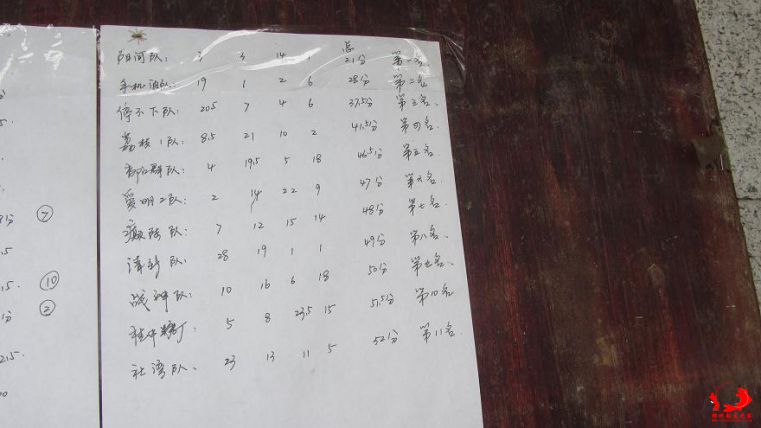 总
阳河队: 3 3 14 1 21分 第一名
手机 队: 19 1 2 6 28分 第二名
停不下队: 20.5 7 4 6 37.5分 第三名.
荔枝1队: 8.5 21 10 2 41.5分 第四名.
队: 4 19.5 5 18 46.5分 第五名.
爱明2队: 2 14 22 9 47分 第六名.
队: 7 12 15 14 48分 第七名.
队: 28 19 1 1 49分 第八名.
战神队: 10 16 6 18 50分 第九名.
5 8 23.5 15 51.5分 第10名
社湾队: 23 13 11 5 52分 第11名.
分 ⑦
⑩
分 ②